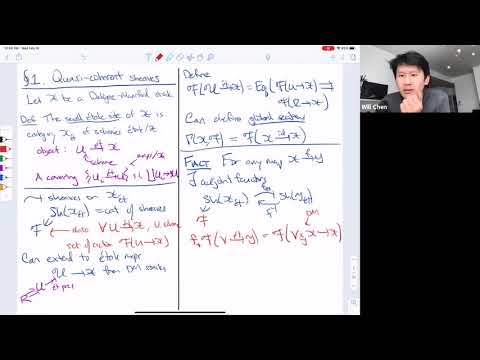 §1. Quasi-coherent sheaves
Let X be a Deligne-Mumford stack
Def The small étale site of X is
category X_ét of schemes étale/X
object: U →ét X
scheme
maps/X
A covering {U_i →ét U} is ⊔U_i → U
→ sheaves on X_ét
Sh(X_ét) = cat of sheaves
F
= data ∀ U →ét X, U scheme
set of F(U→X)
Can extend to étale maps
U → X from DM stacks
R ⇉ U ét pres
Define
F(U →ét X) = Eq(F(U→X) ⇉
F(R→X))
Can define global sections
Γ(X, F) = F(X →id X)
FACT For any map X →f Y
∃ adjoint functors
Sh(X_ét) Sh(Y_ét)
f_*
f^-1
F
DM
f_*F(V →ét Y) = F(V ×_Y X → X)
Will Chen